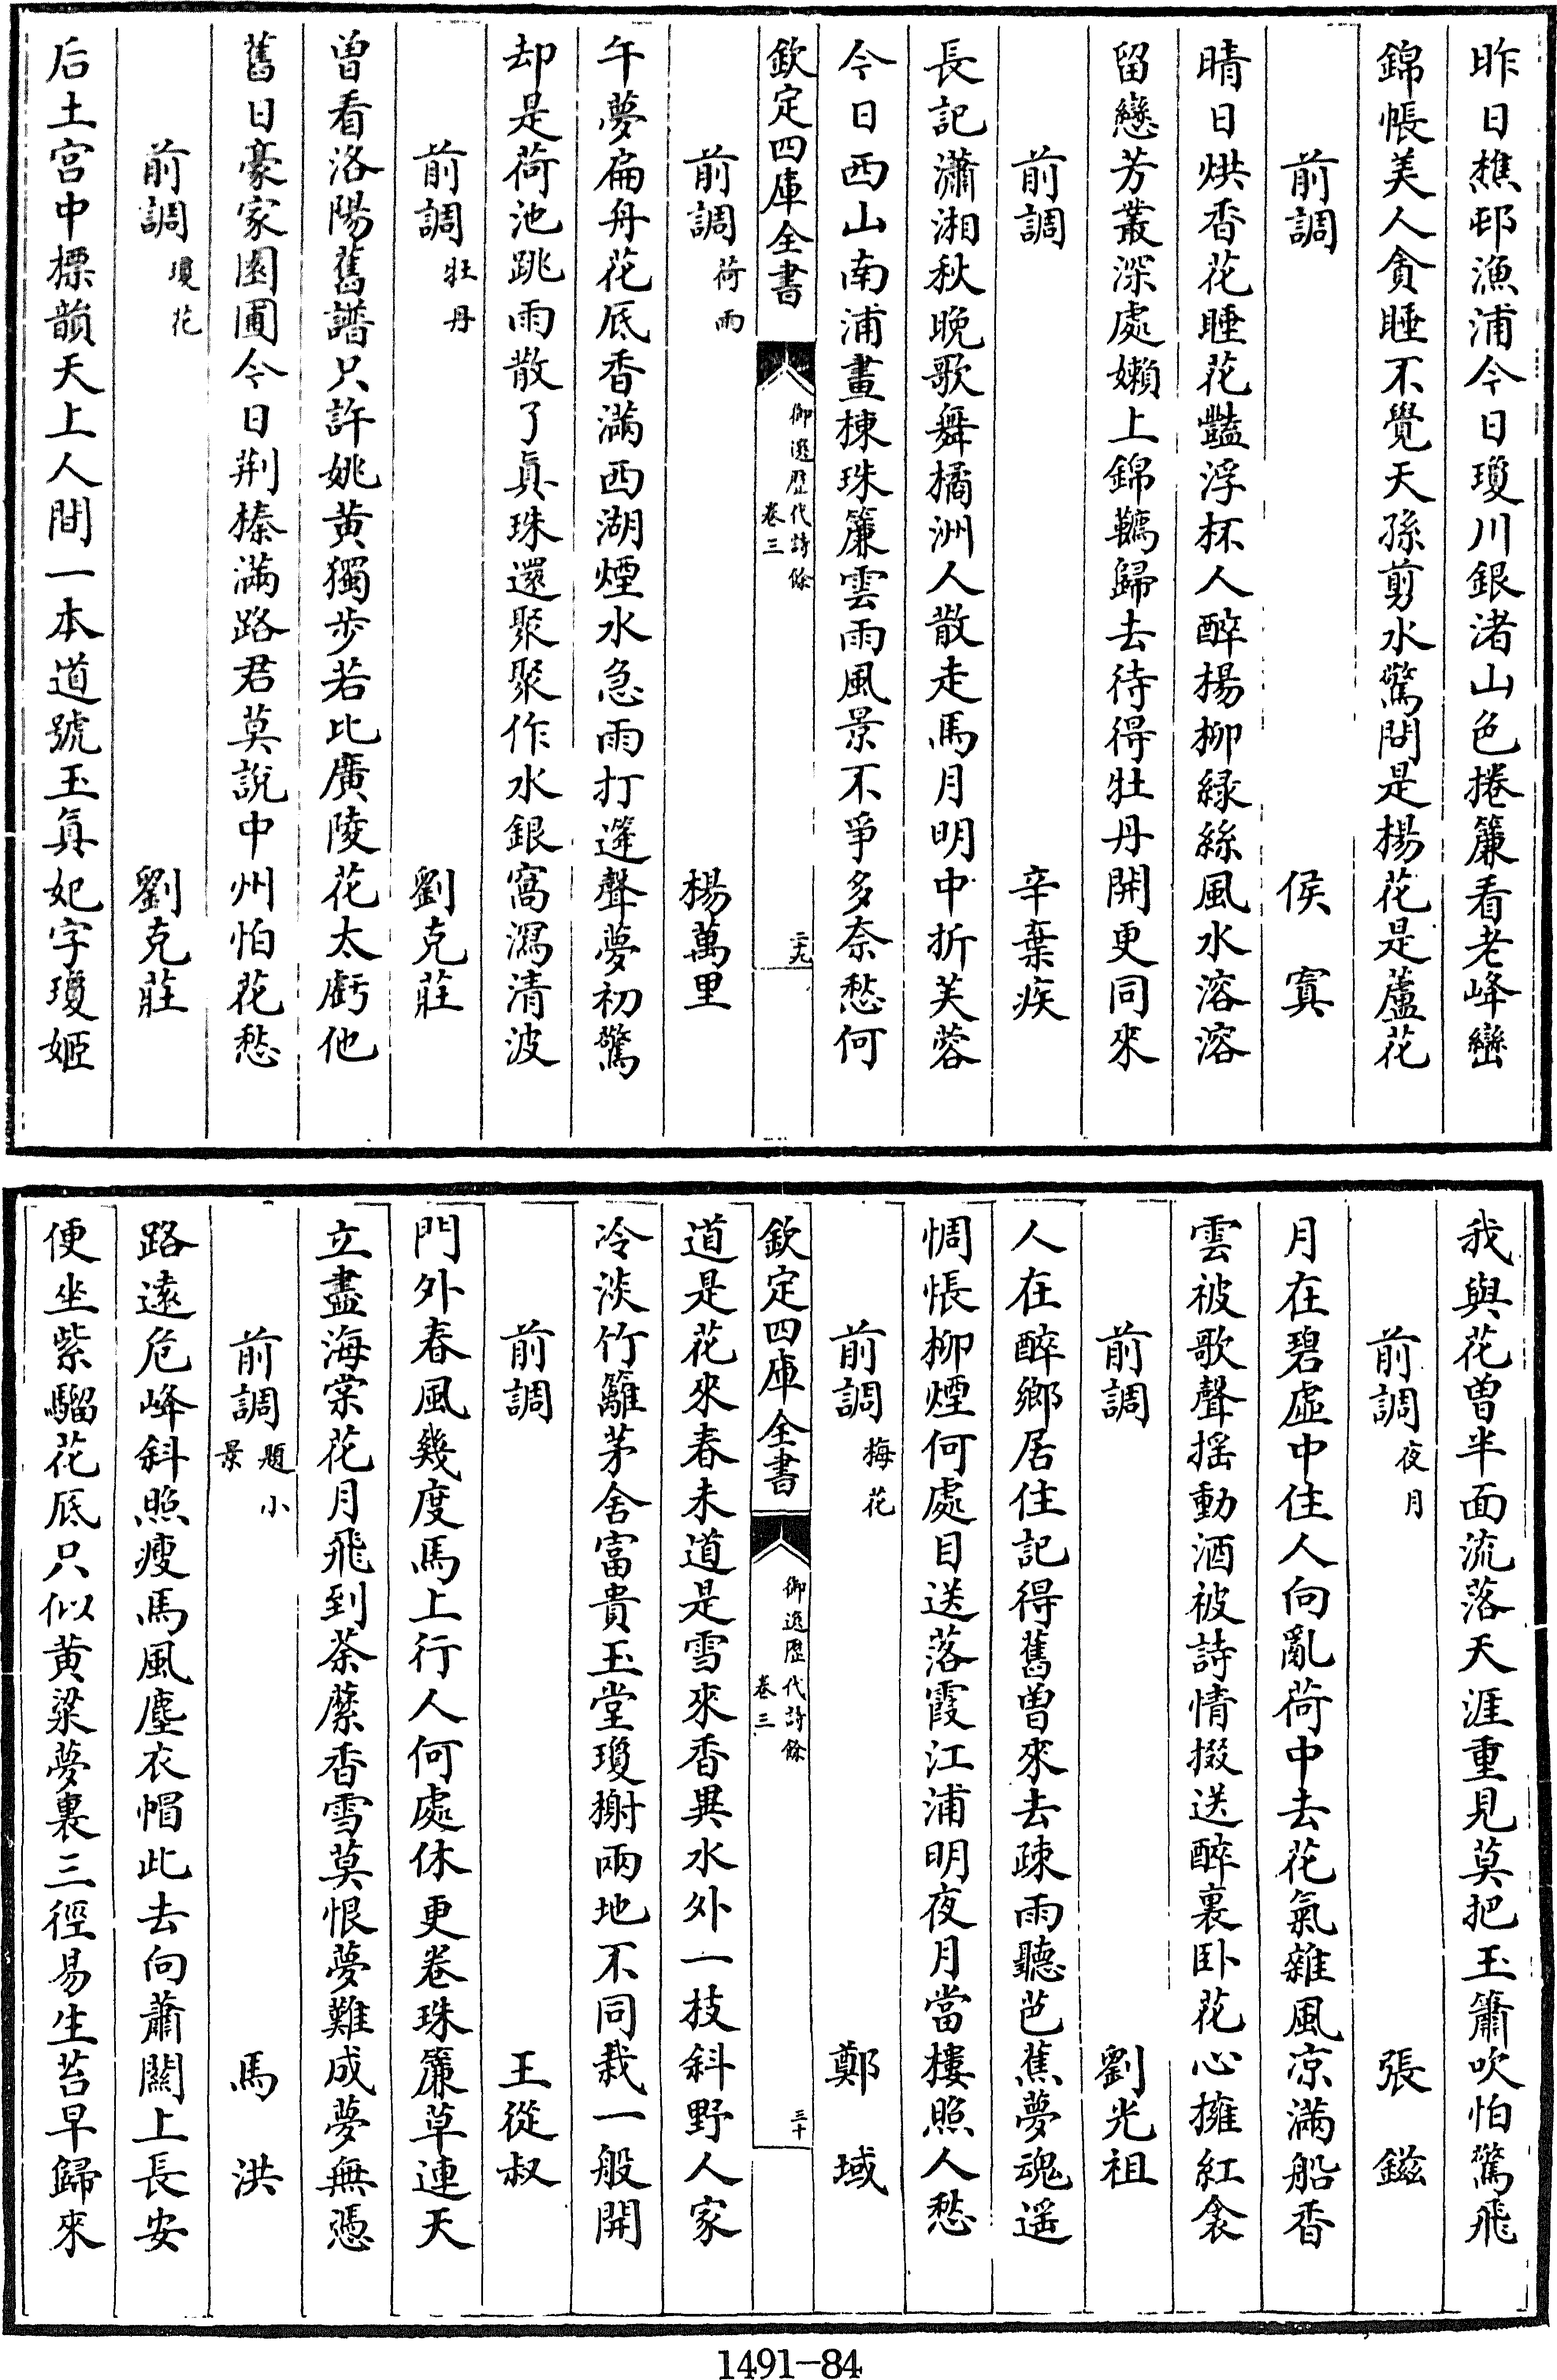 昨日樵邨漁浦今日瓊川銀渚山色捲簾看老峰巒
錦帳美人貪睡不覺天孫剪水驚問是楊花是蘆花
前調 侯寘
晴日烘香花睡花豔浮杯人醉楊柳緑絲風水溶溶
留戀芳叢深處嬾上錦韉歸去待得牡丹開更同來
前調 辛棄疾
長記瀟湘秋晚歌舞橘洲人散走馬月明中折芙蓉
今日西山南浦畫棟珠簾雲雨風景不爭多奈愁何
欽定四庫全書 御選歷代詩餘 卷三 二十九
前調 荷雨 楊萬里
午夢扁舟花底香滿西湖煙水急雨打篷聲夢初驚
却是荷池跳雨散了真珠還聚聚作水銀窩瀉清波
前調 牡丹 劉克莊
曾看洛陽舊譜只許姚黄獨步若比廣陵花太虧他
舊日豪家園圃今日荆榛滿路君莫說中州怕花愁
前調 瓊花 劉克莊
后土宫中標韻天上人間一本道號玉真妃字瓊姬
我與花曾半面流落天涯重見莫把玉簫吹怕驚飛
前調 夜月 張鎡
月在碧虚中住人向亂荷中去花氣雜風凉滿船香
雲被歌聲摇動酒被詩情掇送醉裏卧花心擁紅衾
前調 劉光祖
人在醉鄉居住記得舊曾來去疎雨聽芭蕉夢魂遥
惆悵柳煙何處目送落霞江浦明夜月當樓照人愁
前調 梅花 鄭域
欽定四庫全書 御選歷代詩餘 卷三 三十
道是花來春未道是雪來香異水外一枝斜野人家
冷淡竹籬茅舍富貴玉堂瓊榭兩地不同栽一般開
前調 王從叔
門外春風幾度馬上行人何處休更卷珠簾草連天
立盡海棠花月飛到荼蘼香雪莫恨夢難成夢無憑
前調 題小景 馬洪
路遠危峰斜照瘦馬風塵衣帽此去向蕭關上長安
便坐紫騮花底只似黄粱夢裏三徑易生苔早歸來
1491-84